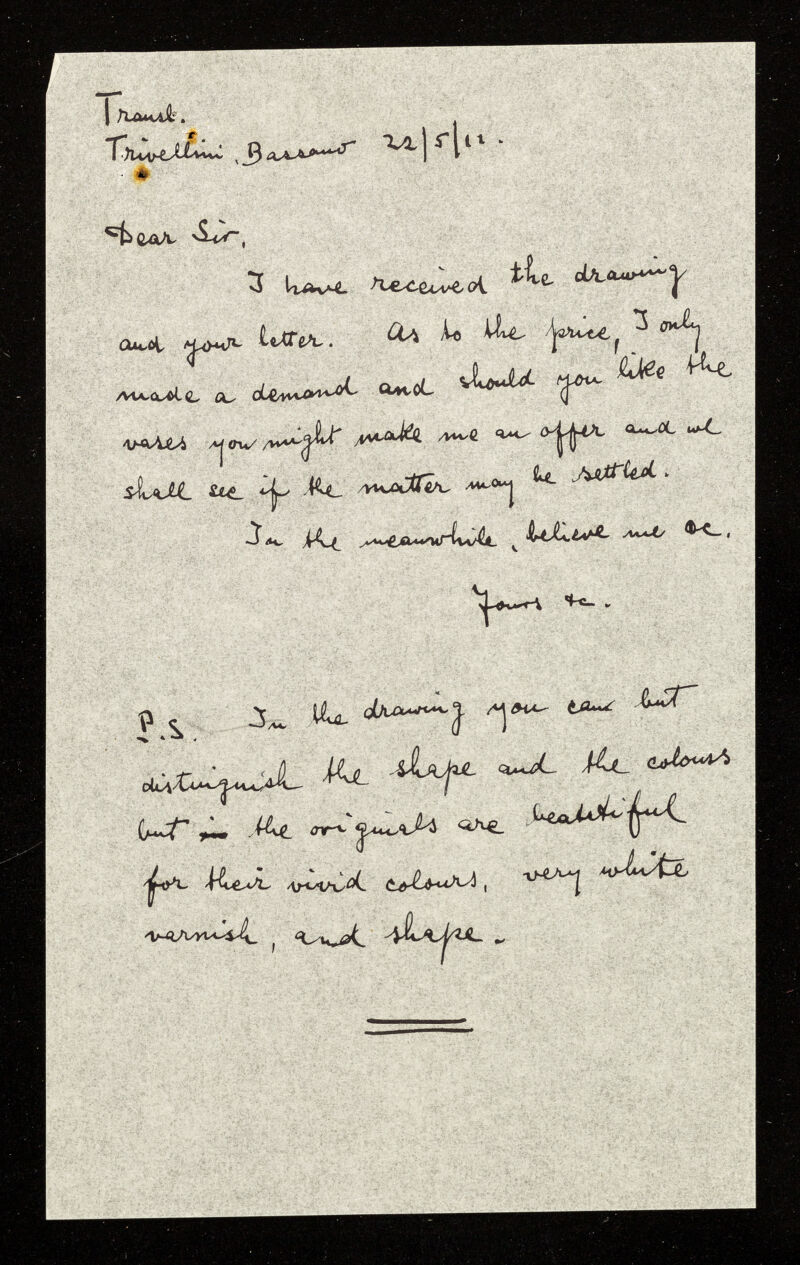 Transl.
Trivellini, Bassano 22/5/12.
Dear Sir,
I have received the drawing
and your letter. As to the price, I only
made a demand and should you like the
vases you might make me an offer and we
shall see if the matter may be settled.
In the meanwhile, believe me &c.
Yours &c.
P.S. In the drawing you can but
distinguish the shape and the colours
but in the originals are beautiful
for their vivid colours, very white
varnish, and shape.